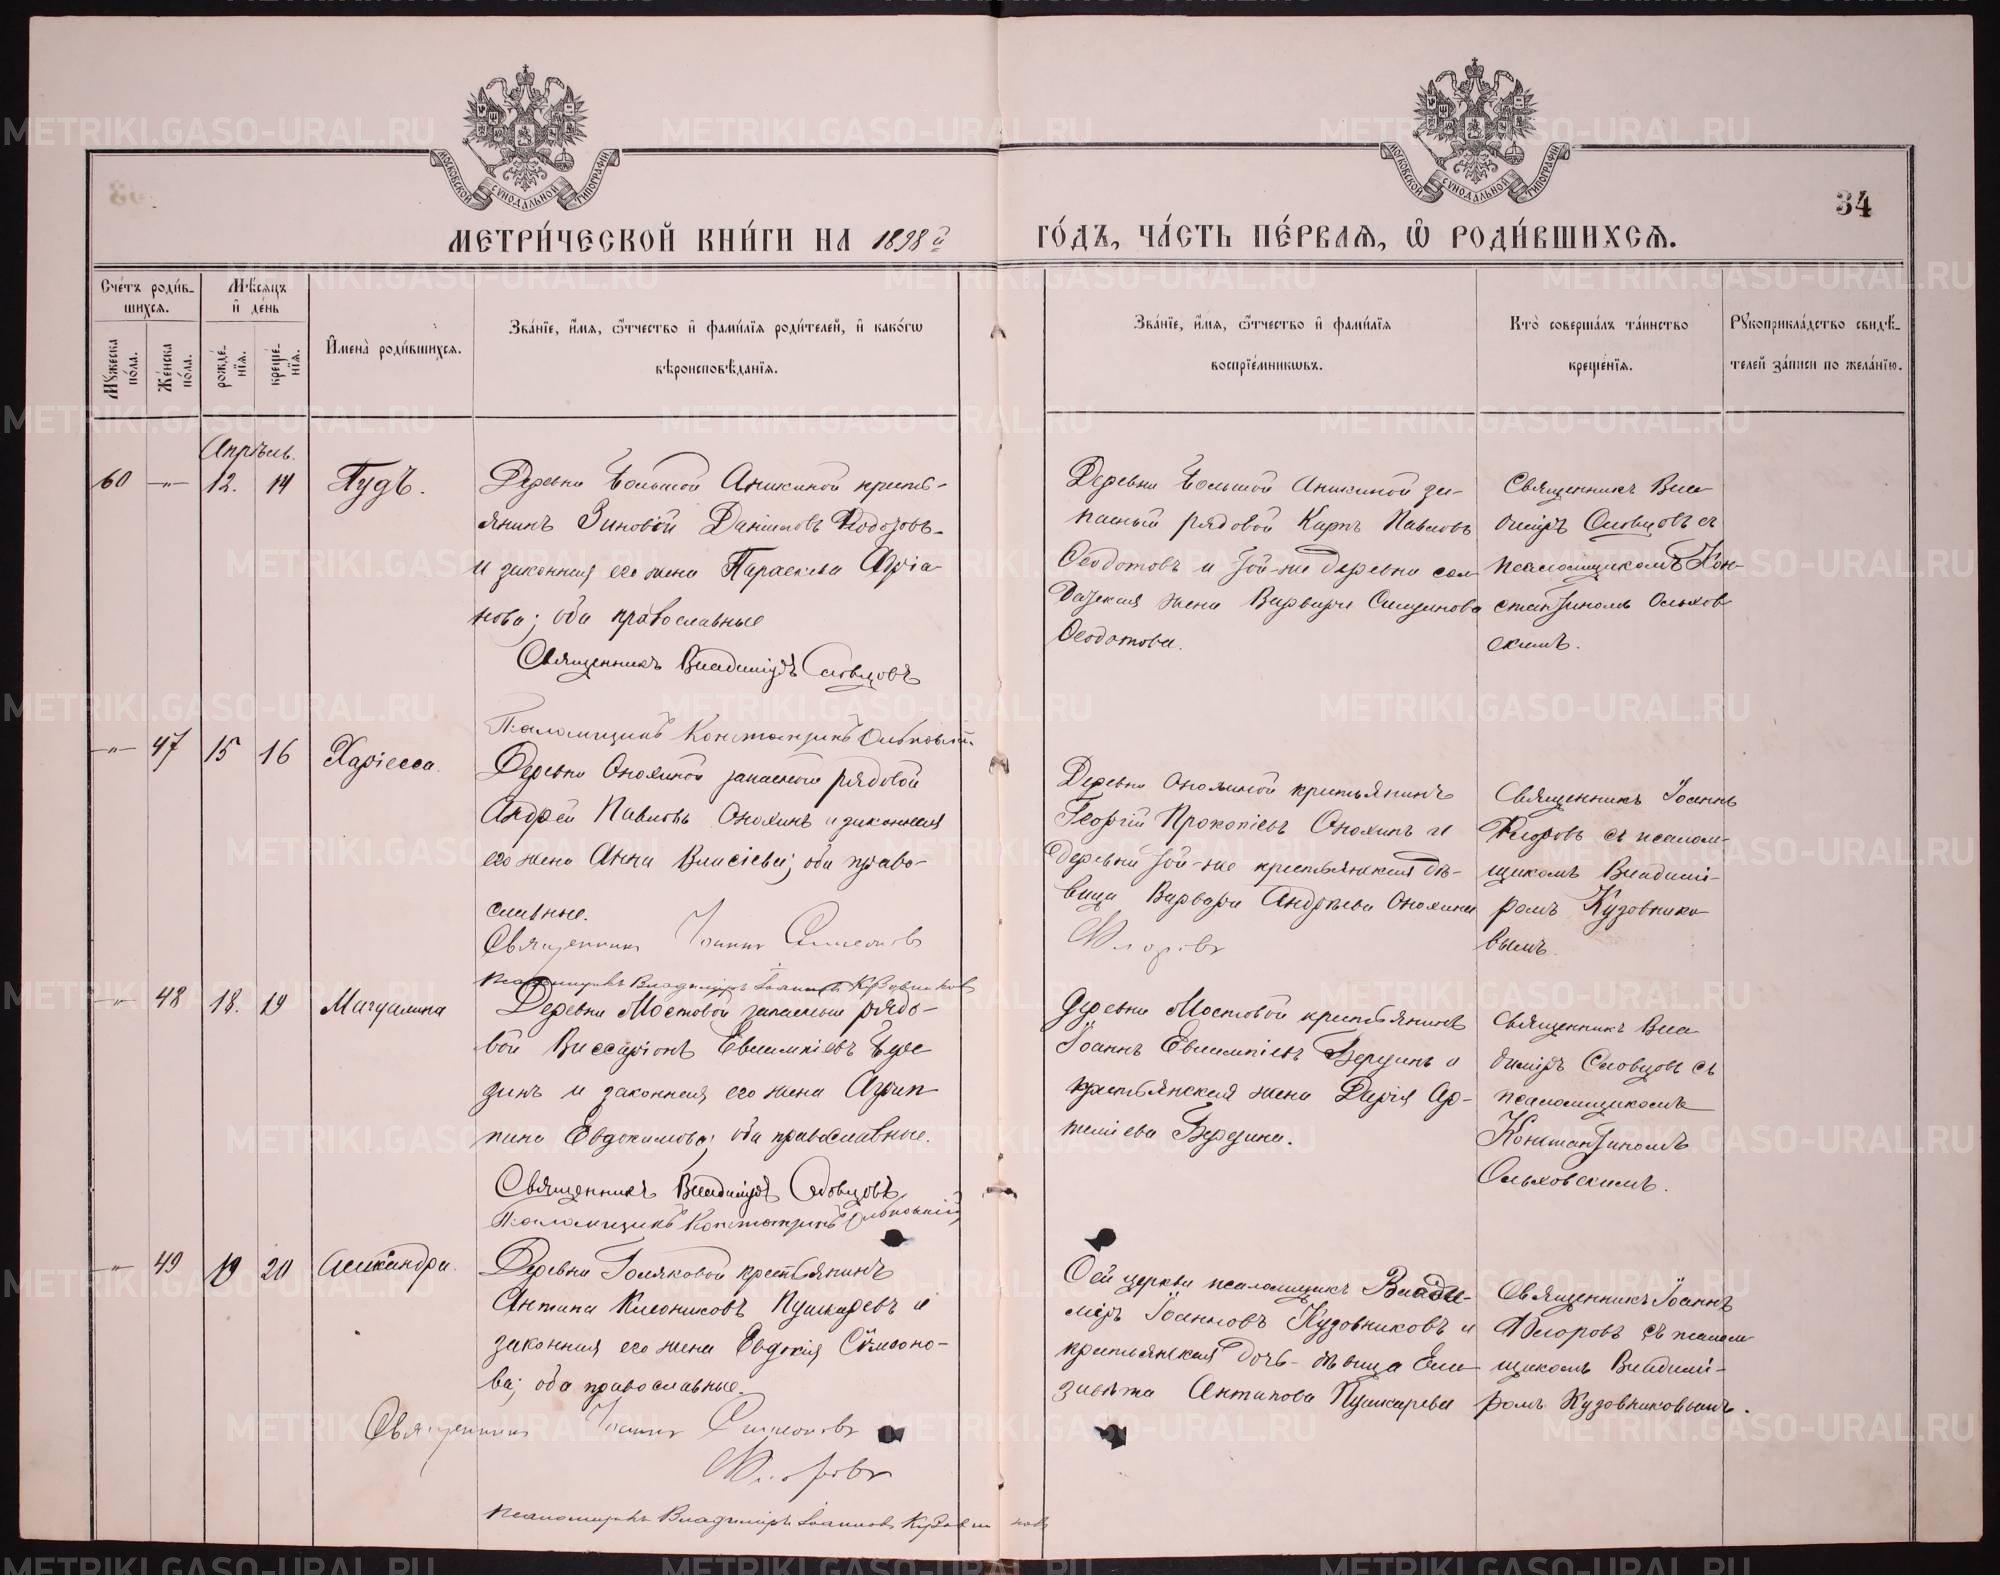 МОСКОВСКОЙ СѴНОДАЛЬНОЙ ТИПОГРАФІИ
МОСКОВСКОЙ СѴНОДАЛЬНОЙ ТИПОГРАФІИ
34
МЕТРИ́ЧЕСКОЙ КНИ́ГИ НА 1898й ГО́ДЪ, ЧА́СТЬ ПЕ́РВАЯ, Ѡ РОДИ́ВШИХСЯ.
Сче́тъ роди́в-
шихся.
Мꙋ́жеска по́ла.
Же́нска по́ла.
Мѣ́сяцъ
и де́нь
рожде́-
нїя.
креще́-
нїя.
И҆мена̀ роди́вшихся.
Зва́нїе, и҆́мя, ѻ҆́тчество и҆ фами́лїя роди́телей, и҆ како́гѡ
вѣроисповѣ́данїя.
Зва́нїе, и҆́мя, ѻ҆́тчество и҆ фами́лїя
воспрїе́мникѡвъ.
Кто̀ соверша́лъ та́инство
креще́нїя.
Рꙋкоприкла́дство свидѣ́-
телей за́писи по жела́нїю.
Апрѣль.
60 —„— 12. 14 Пудъ.
Деревни Большой Аникиной кресть-
янинъ Зиновій Даніиловъ Ѳеодотовъ
и законная его жена Параскева Адріа-
нова; оба православные
Священникъ Владиміръ Словцовъ
Псаломщикъ Константинъ Ольховскій
Деревни Большой Аникиной за-
пасный рядовой Карпъ Павловъ
Ѳеодотовъ и той-же деревни сол-
датская жена Варвара
Ѳеодотова.
Священникъ Вла-
диміръ Словцовъ съ
псаломщикомъ Кон-
стантиномъ Ольхов
скимъ.
—„— 47 15 16 Харіесса.
Деревни Онохиной запасный рядовой
Андрей Павловъ Онохинъ и законная
его жена Анна Власіева; оба право-
славные.
Священникъ Іоаннъ Симеоновъ
Флоровъ
Псаломщикъ Владиміръ Іоанновъ Кузовниковъ
Деревни Онохиной крестьянинъ
Георгій Прокопіевъ Онохинъ и
деревни той-же крестьянская дѣ-
вица Варвара Андреева Онохина
Священникъ Іоаннъ
Флоровъ съ псалом-
щикомъ Владимі-
ромъ Кузовнико-
вымъ.
—„— 48 18. 19 Магдалина
Деревни Мостовой запасный рядо-
вой Виссаріонъ Евлампіевъ Бере
зинъ и законная его жена Агрип
пина Евдокимова; оба православные.
Священникъ Владиміръ Словцовъ
Псаломщикъ Константинъ Ольховскій
Деревни Мостовой крестьянинъ
Іоаннъ Евлампіевъ Березинъ и
крестьянская жена Дарія Ар-
теміева Березина.
Священникъ Вла
диміръ Словцовъ съ
псаломщикомъ
Константиномъ
Ольховскимъ.
—„— 49 19 20 Александра.
Деревни Голяковой крестьянинъ
Антипа Клеониковъ Пушкаревъ и
законная его жена Евдокія Сѵмеоно-
ва; оба православные.
Священникъ Іоаннъ Симеоновъ
Флоровъ
Псаломщикъ Владиміръ Іоанновъ Кузовниковъ
Сей церкви псаломщикъ Влади-
міръ Іоанновъ Кузовниковъ и
крестьянская дочь-дѣвица Ели-
завета Антипова Пушкарева
Священникъ Іоаннъ
Флоровъ съ псалом
щикомъ Владимі-
ромъ Кузовниковымъ.
METRIKI.GASO-URAL.RU